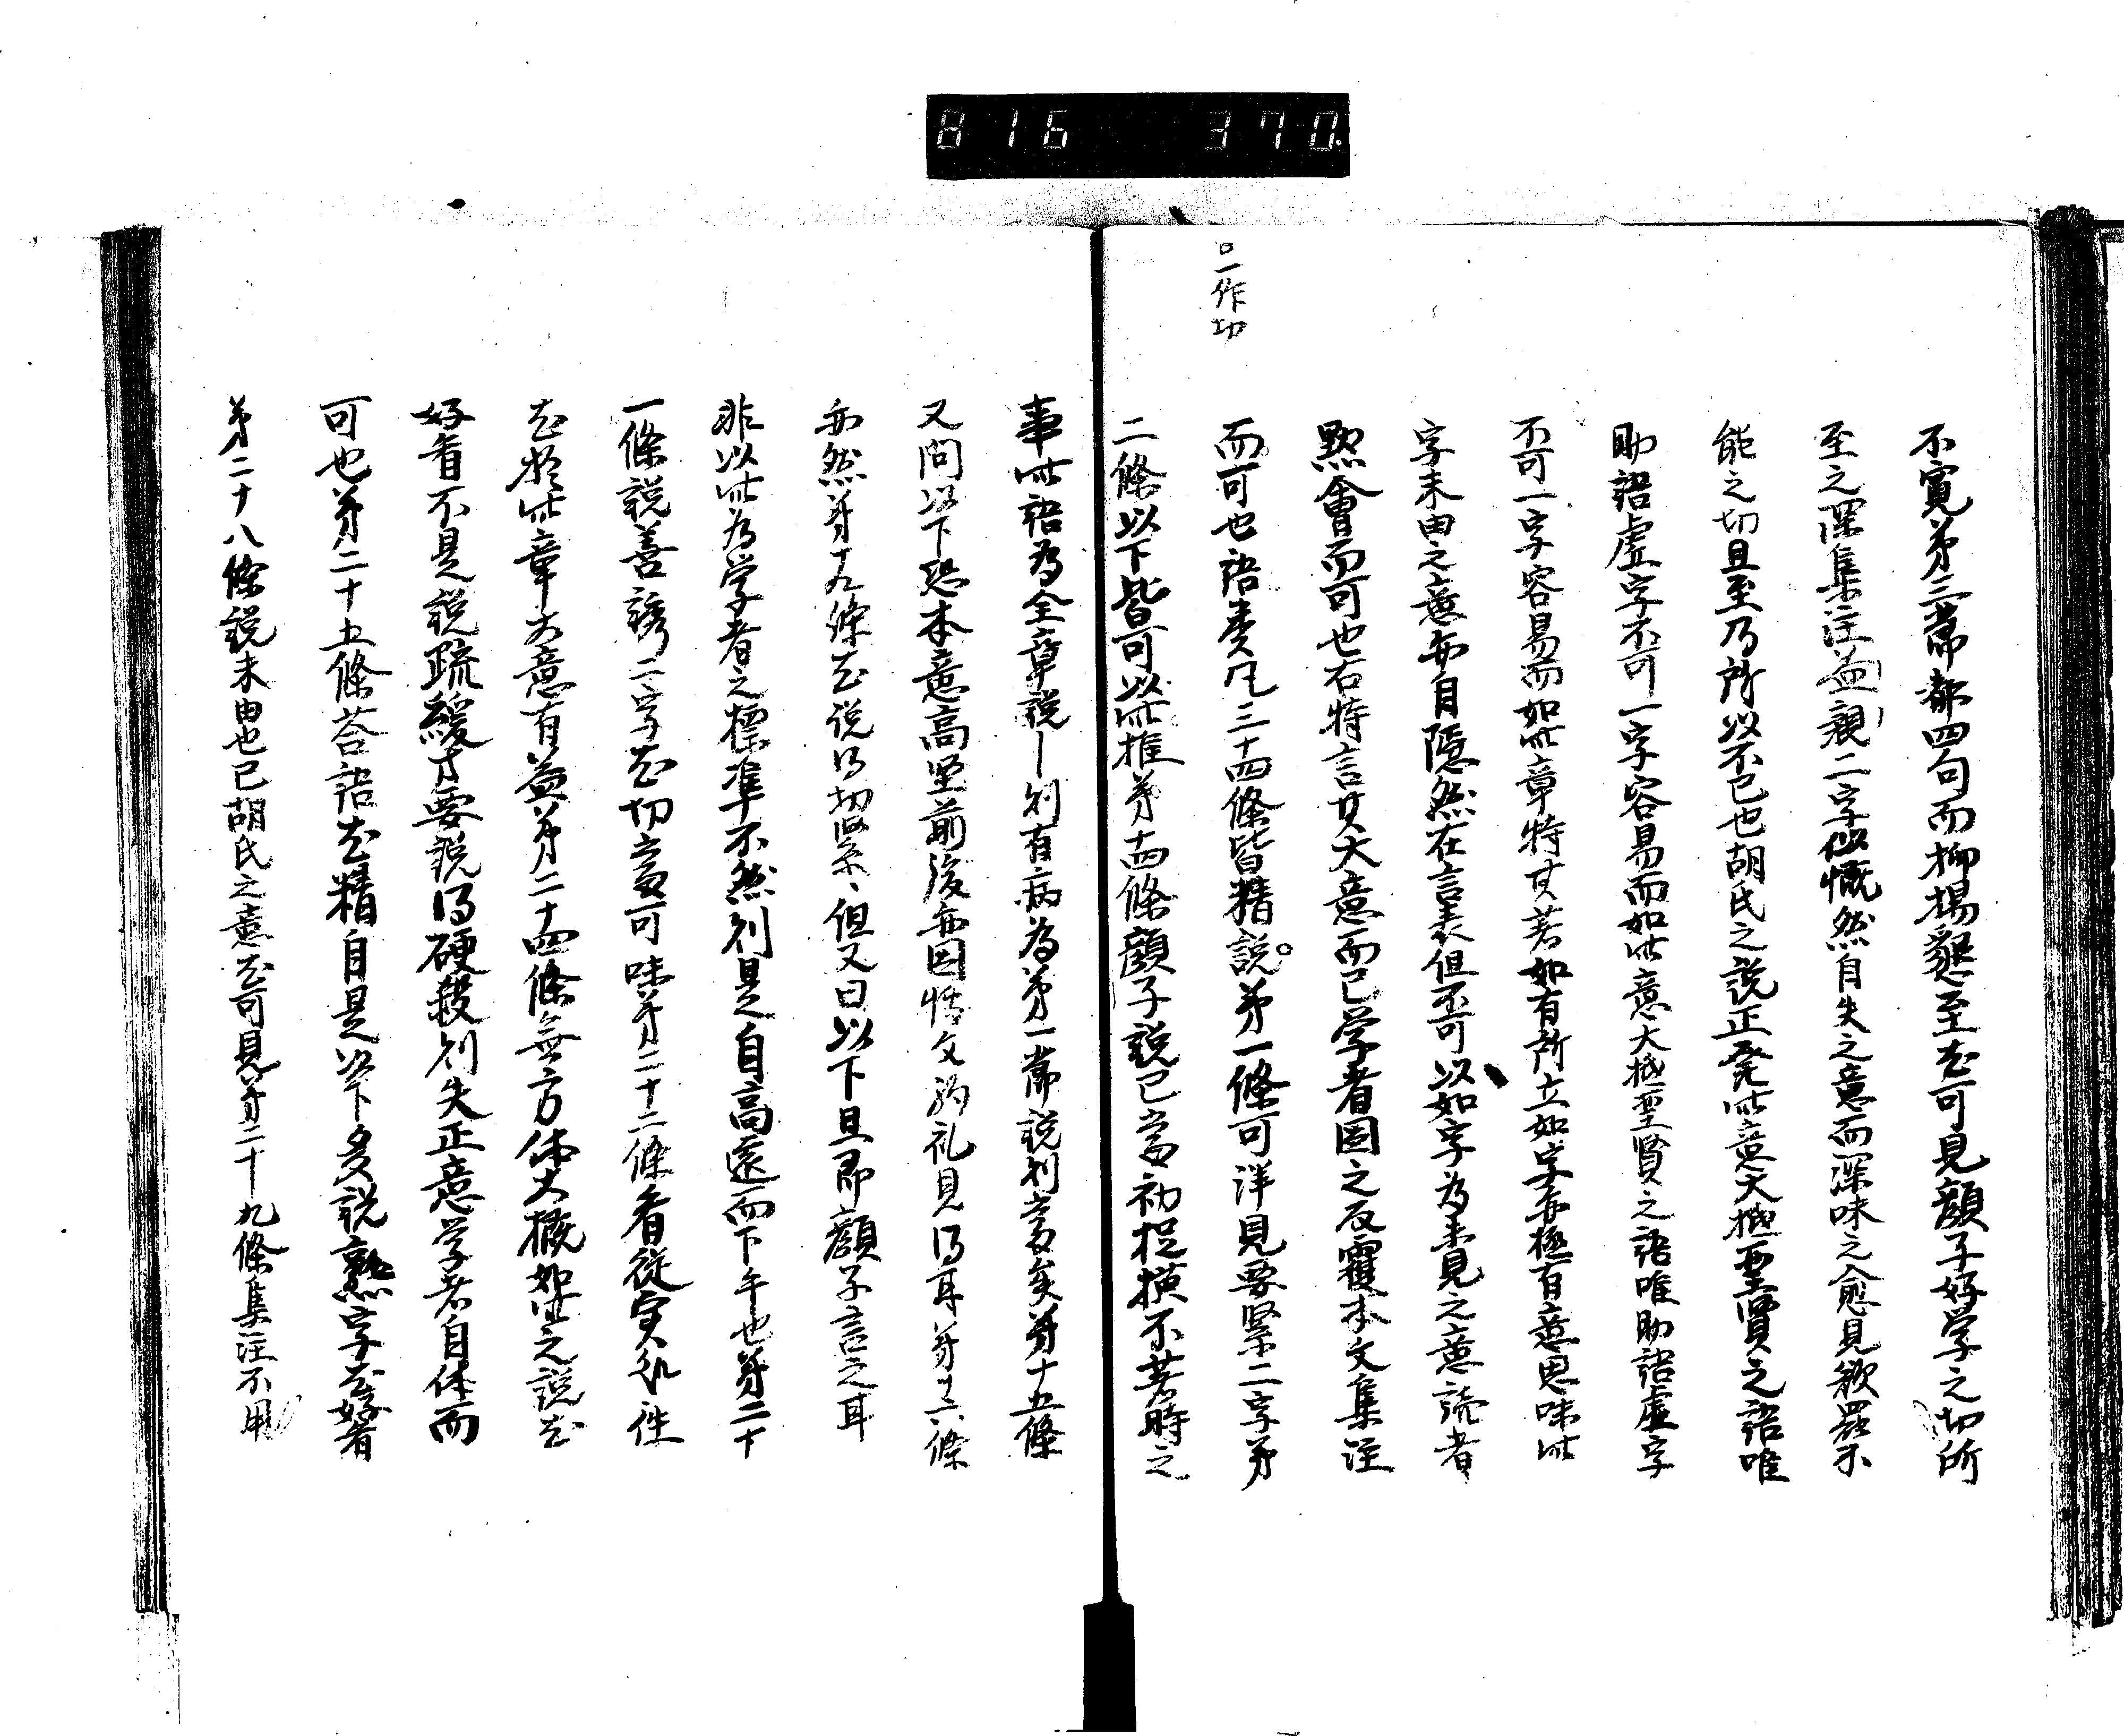 816 370.
○一作切
不寛第三節都四句而抑揚懇至尤可見顔子好学之切所
至之深集注益親二字似慨然自失之意而深味之愈見欲罷不
能之切且至乃所以不已也胡氏之説正発此意大抵聖賢之語唯
助語虚字不可一字容易而如此意大抵聖賢之語唯助語虚字
不可一字容易而如此章特其若如有所立如字亦極有意思味此
字末由之意亦自隠然在言表但不可以如字為未見之意読者
黙會而可也右特言其大意而已学者因之反覆本文集注
而可也語類凡三十四條皆精説○第一條可詳見要緊二字第
二條以下皆可以此推第十四條顔子説已當初捉摸不著時之
事此語為全章説則有病為第一節説則當矣第十五條
又問以下恐本意高堅前後亦因博文約礼見得耳第十六條
亦然第十九條尤説得切緊但又曰以下且即顔子言之耳
非以此為学者之標準不然則是自高遠而下手也第二十
一條説善誘二字尤切當可味第二十二條看從実処徃
尤於此章大意有益第二十四條無方体大概如此之説尤
好看不是説疏緩才要説得硬殺則失正意学者自体而
可也第二十五條答語尤精自是以下多説熟字尤好看
第二十八條説末由也已胡氏之意尤可見第二十九條集注不用